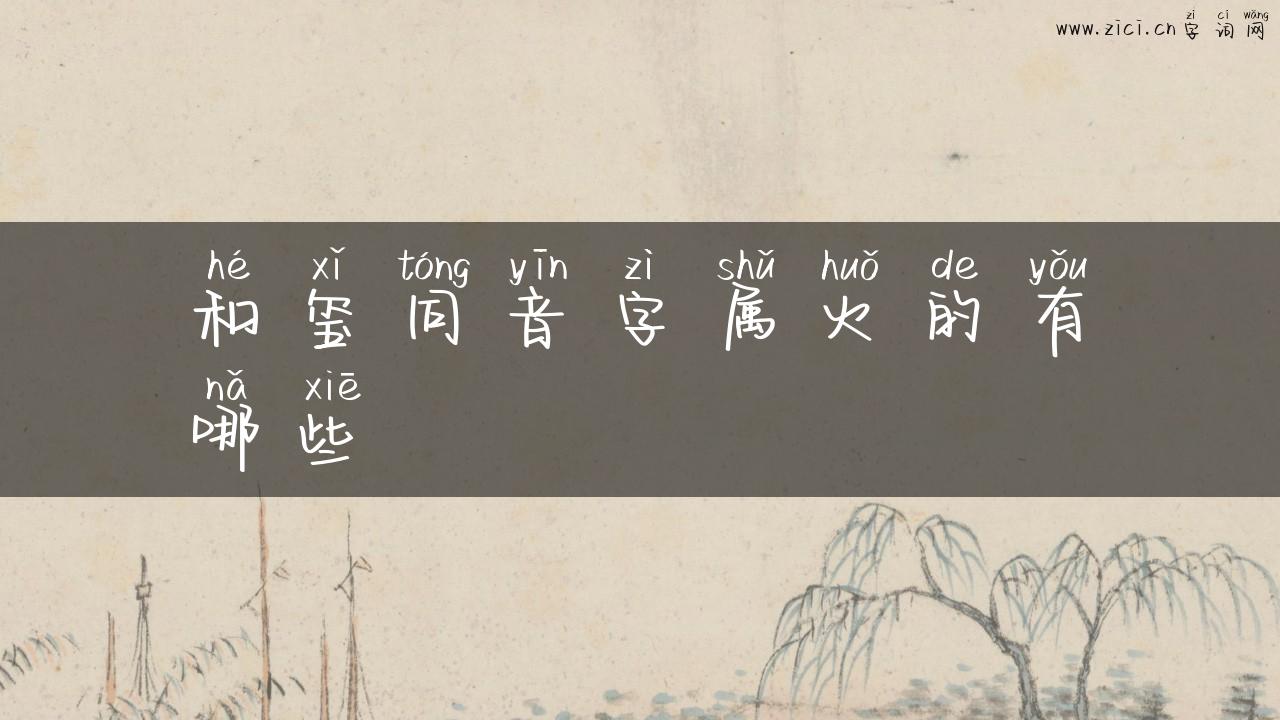 zì cí wǎng
www.zici.cn 字 词 网
hé xǐ tóng yīn zì shǔ huǒ de yǒu
和 玺 同 音 字 属 火 的 有
nǎ xiē
哪 些